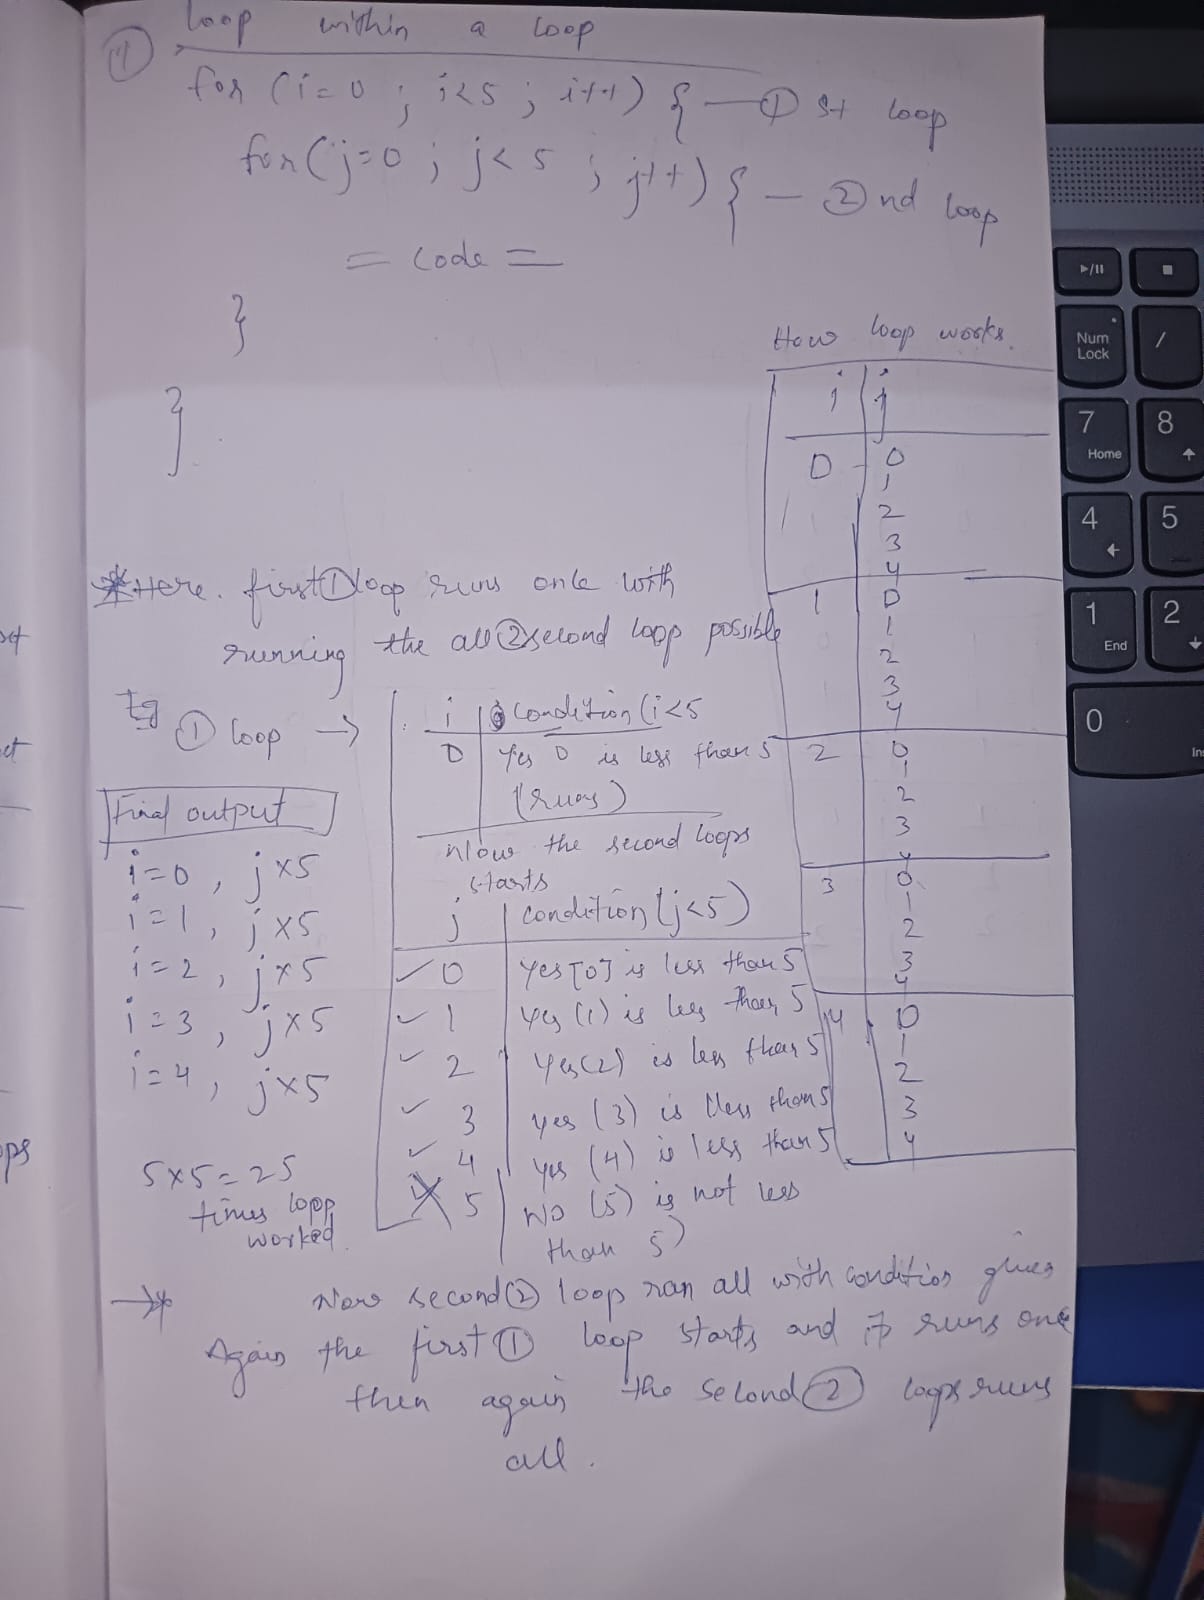 loop within a loop
for (i=0 ; i<5 ; i++) { — ① st loop
for (j=0 ; j<5 ; j++) { — ② nd loop
= code =
}
}
How loop works.
i | j
0 0
1
2
3
4
1 0
1
2
3
4
2 0
1
2
3
4
3 0
1
2
3
4
4 0
1
2
3
4
* Here. first ① loop runs once with
running the all ② second loop possible
Eg ① loop →
i | condition (i<5
0 | Yes 0 is less than 5
(runs)
Now the second loops
starts
j | condition (j<5)
✓ 0 | Yes [0] is less than 5
✓ 1 | Yes (1) is less than 5
✓ 2 | Yes (2) is less than 5
✓ 3 | yes (3) is less than 5
✓ 4 | yes (4) is less than 5
X 5 | No (5) is not less
than 5)
Final output
i=0 , j×5
i=1 , j×5
i=2 , j×5
i=3 , j×5
i=4 , j×5
5×5=25
times loop
worked.
→ Now second ② loop ran all with condition
Again the first ① loop starts and it runs once
then again the second ② loops runs
all.
Num
Lock
/
7
Home
8
4
5
1
End
2
0
In